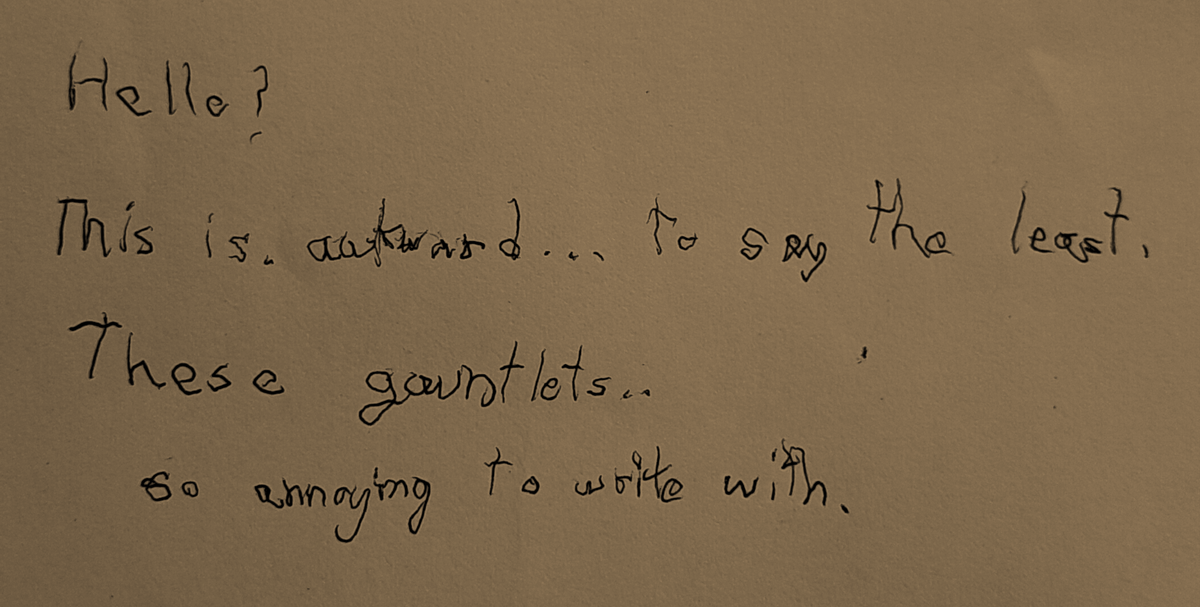 Hello?
This is. awkward... to say the least.
These gauntlets..
so annoying to write with.